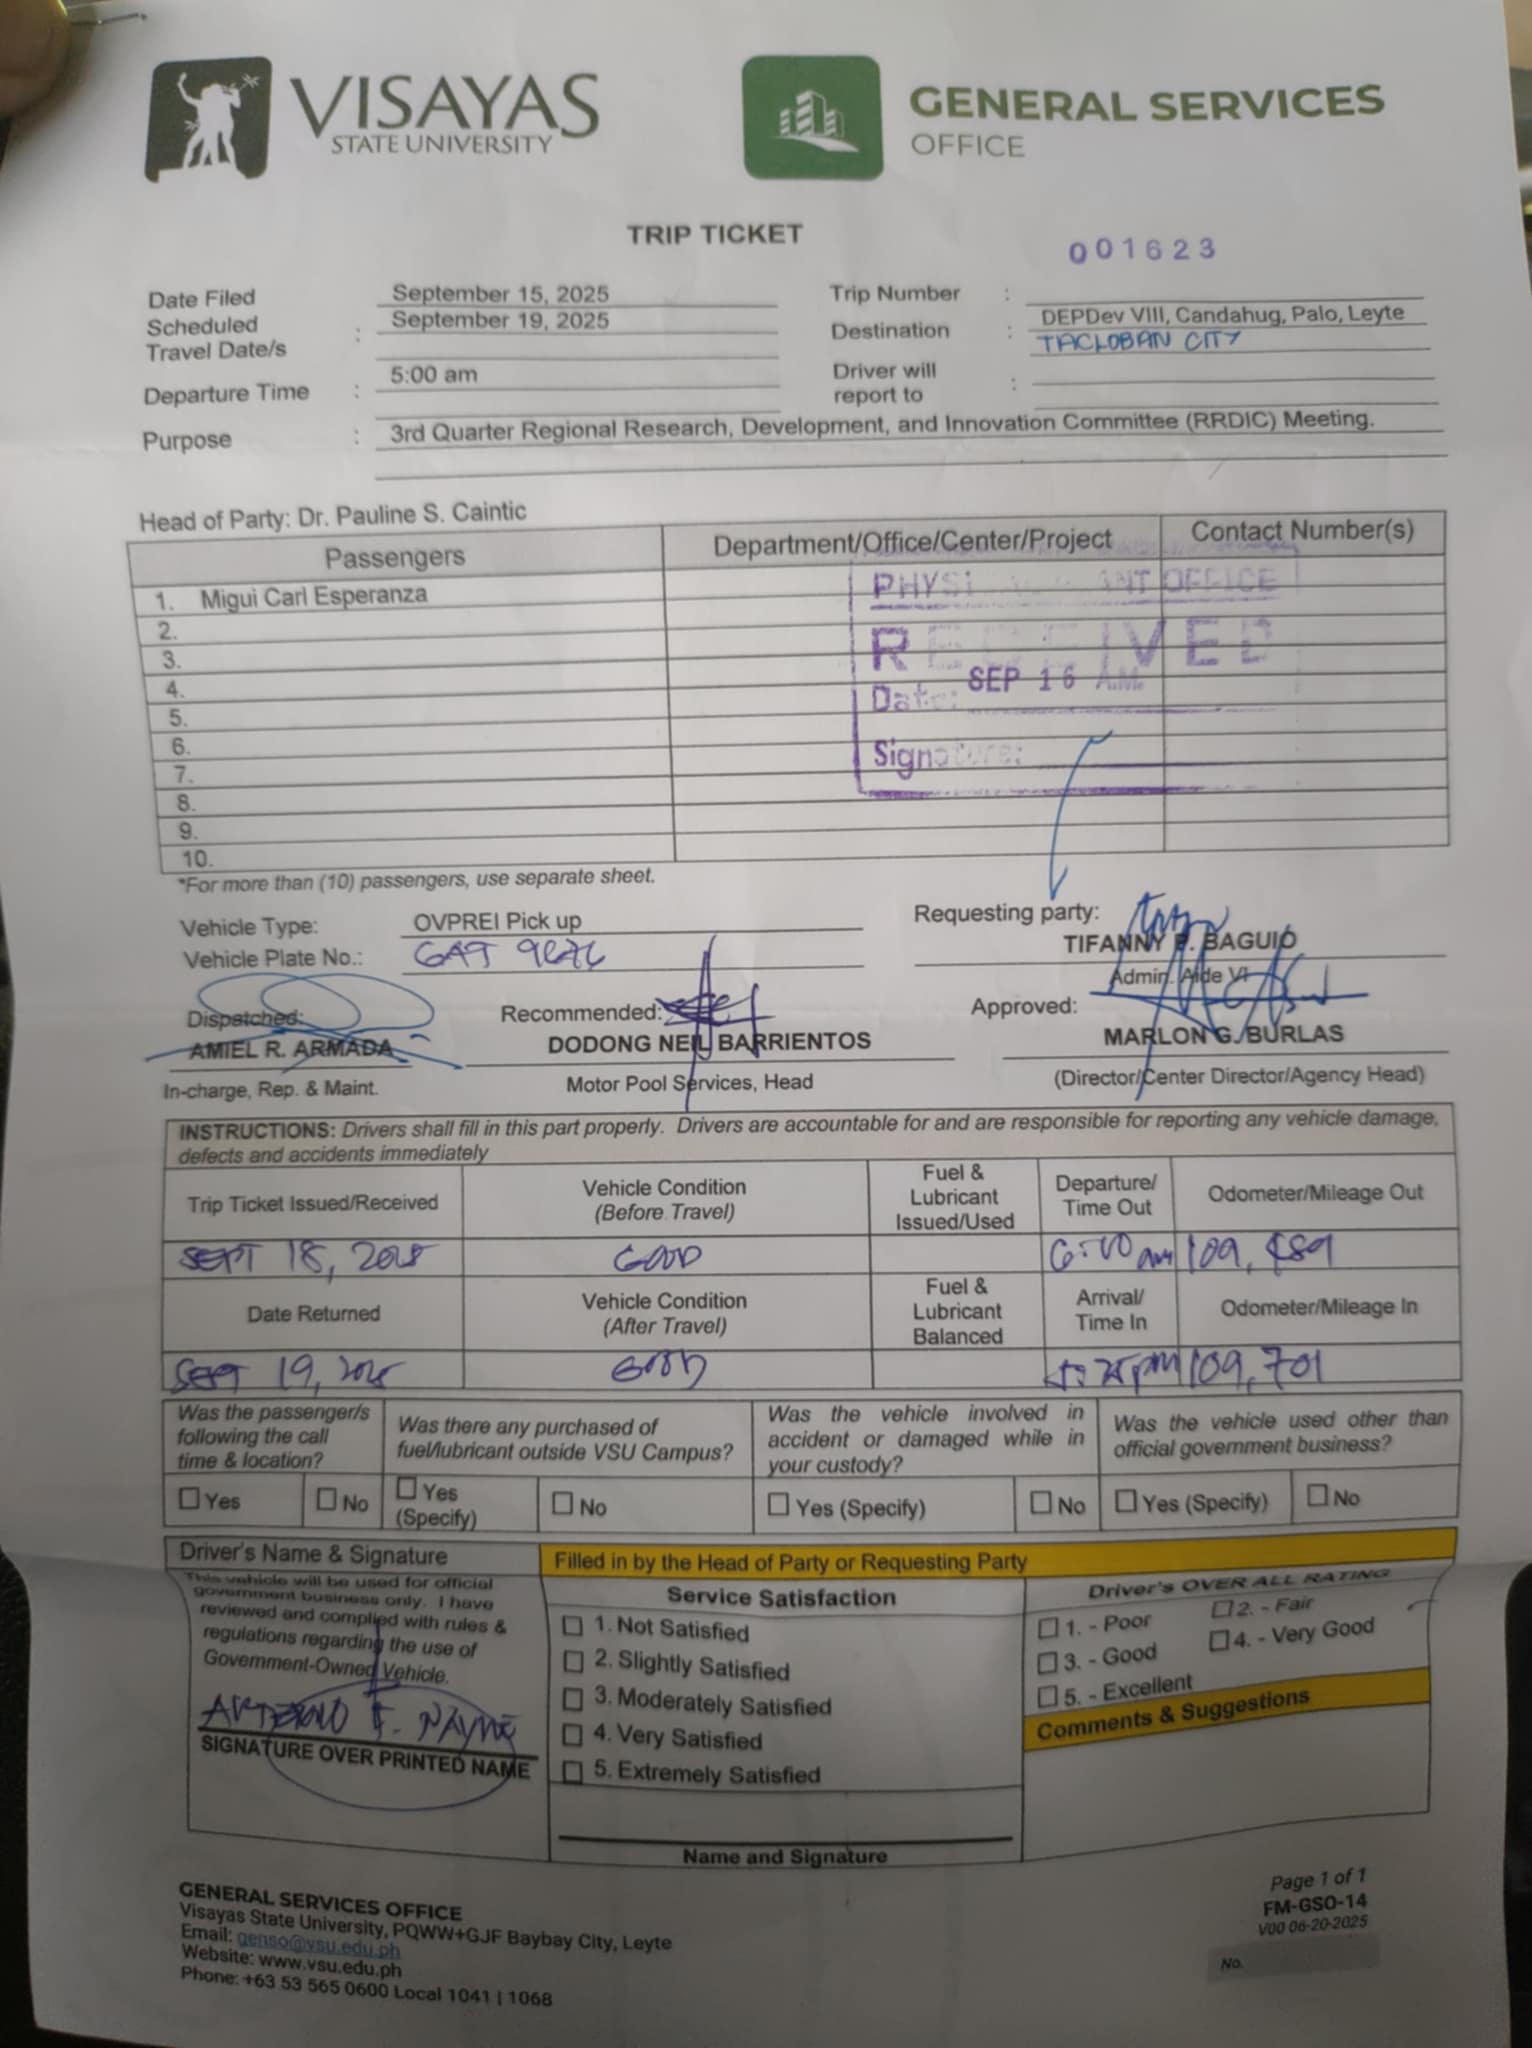 VISAYAS
STATE UNIVERSITY
GENERAL SERVICES
OFFICE
TRIP TICKET
001623
Date Filed September 15, 2025
Trip Number :
Scheduled Travel Date/s : September 19, 2025
Destination : DEPDev VIII, Candahug, Palo, Leyte
TACLOBAN CITY
Departure Time : 5:00 am
Driver will report to :
Purpose : 3rd Quarter Regional Research, Development, and Innovation Committee (RRDIC) Meeting.
Head of Party: Dr. Pauline S. Caintic
Passengers Department/Office/Center/Project Contact Number(s)
1. Migui Carl Esperanza
2.
3.
4.
5.
6.
7.
8.
9.
10.
OFFICE
RECEIVED
Date: SEP 16 A.M.
Signature:
*For more than (10) passengers, use separate sheet.
Vehicle Type: OVPREI Pick up
Vehicle Plate No.:
Requesting party:
TIFANNY P. BAGUIO
Admin. Aide VI
Dispatched:
AMIEL R. ARMADA
In-charge, Rep. & Maint.
Recommended:
DODONG NEIL BARRIENTOS
Motor Pool Services, Head
Approved:
MARLON G. BURLAS
(Director/Center Director/Agency Head)
INSTRUCTIONS: Drivers shall fill in this part properly. Drivers are accountable for and are responsible for reporting any vehicle damage,
defects and accidents immediately
Trip Ticket Issued/Received Vehicle Condition (Before Travel) Fuel & Lubricant Issued/Used Departure/ Time Out Odometer/Mileage Out
SEPT 18, 2025 GOOD 6:00 am
Date Returned Vehicle Condition (After Travel) Fuel & Lubricant Balanced Arrival/ Time In Odometer/Mileage In
SEPT 19, 2025 GOOD 109,701
Was the passenger/s following the call time & location?
Was there any purchased of fuel/lubricant outside VSU Campus?
Was the vehicle involved in accident or damaged while in your custody?
Was the vehicle used other than official government business?
Yes No Yes (Specify) No Yes (Specify) No Yes (Specify) No
Driver's Name & Signature
This vehicle will be used for official
government business only. I have
reviewed and complied with rules &
regulations regarding the use of
Government-Owned Vehicle.
SIGNATURE OVER PRINTED NAME
Filled in by the Head of Party or Requesting Party
Service Satisfaction
1. Not Satisfied
2. Slightly Satisfied
3. Moderately Satisfied
4. Very Satisfied
5. Extremely Satisfied
Name and Signature
Driver's OVER ALL RATING
1. - Poor 2. - Fair
3. - Good 4. - Very Good
5. - Excellent
Comments & Suggestions
GENERAL SERVICES OFFICE
Visayas State University, PQWW+GJF Baybay City, Leyte
Email: genso@vsu.edu.ph
Website: www.vsu.edu.ph
Phone: +63 53 565 0600 Local 1041 | 1068
Page 1 of 1
FM-GSO-14
V00 06-20-2025
No.